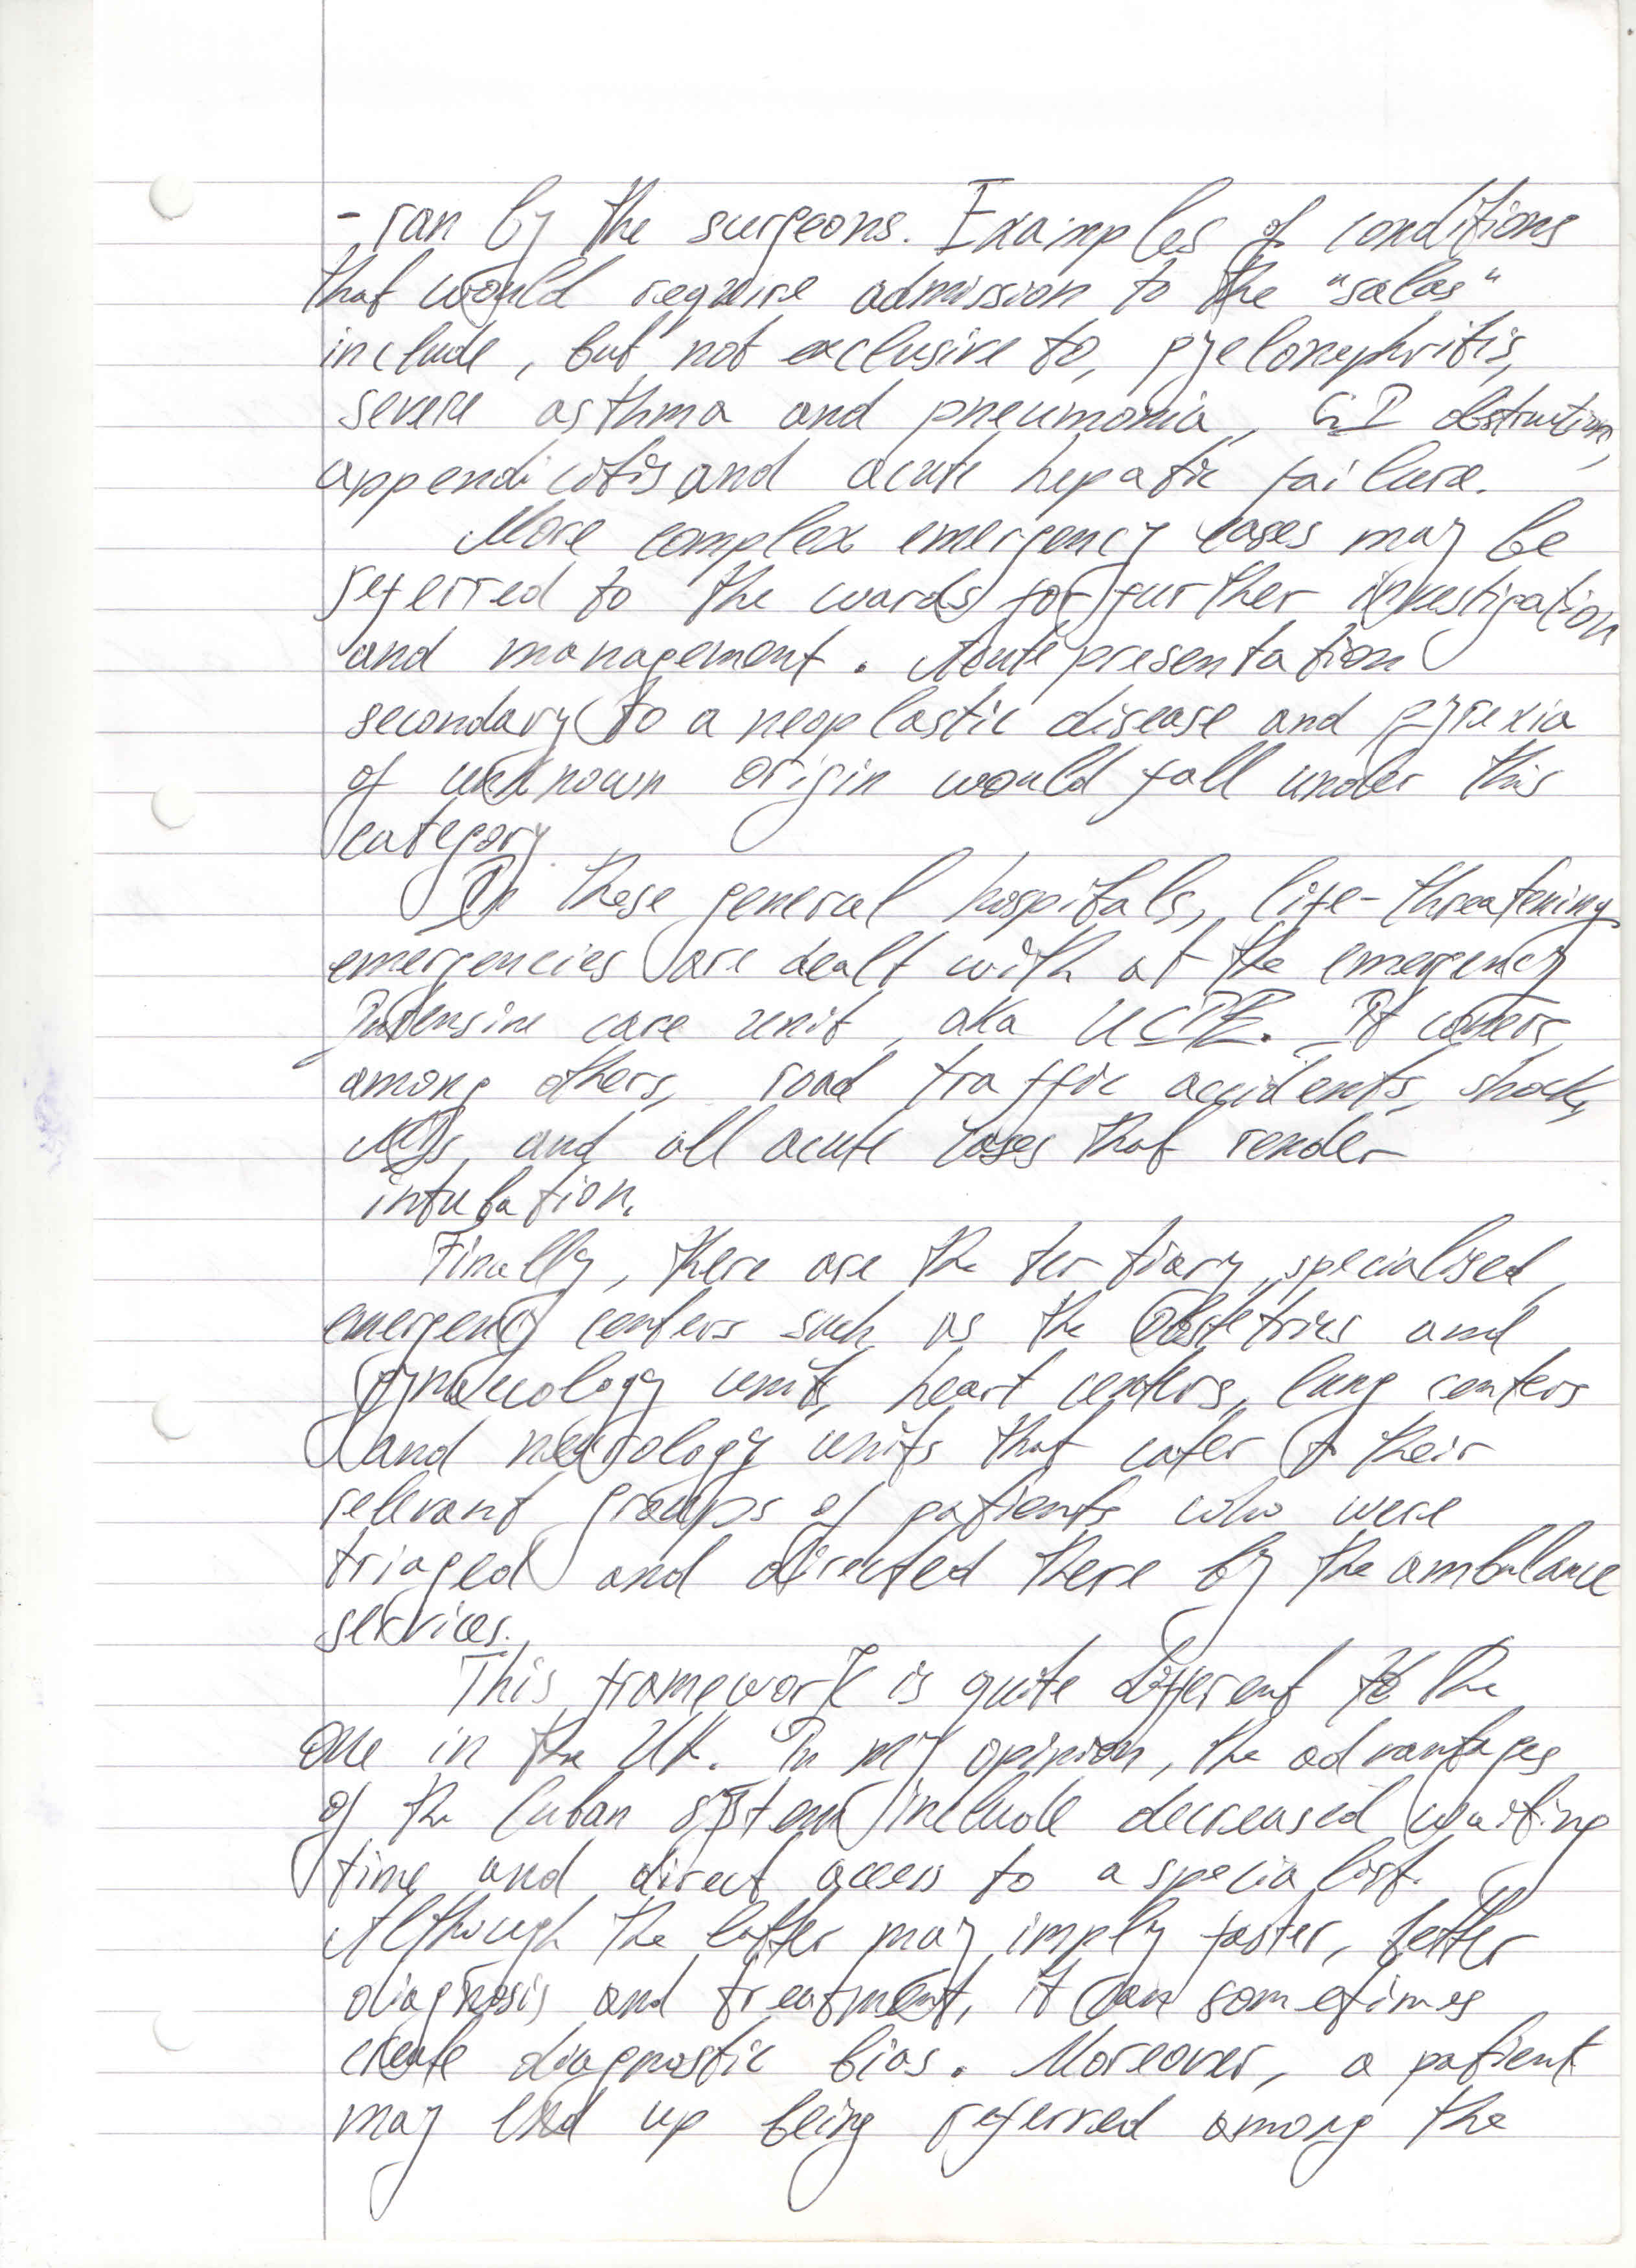 - ran by the surgeons. Examples of conditions
that would require admission to the "salas"
include, but not exclusive to, pyelonephritis,
severe asthma and pneumonia, GI obstruction,
appendicitis and acute hepatic failure.
More complex emergency cases may be
referred to the wards for further investigation
and management. Acute presentation
secondary to a neoplastic disease and pyrexia
of unknown origin would fall under this
category.
In these general hospitals, life-threatening
emergencies are dealt with at the emergency
intensive care unit, aka UCIE. It covers,
among others, road traffic accidents, shock,
MIs, and all acute cases that render
intubation.
Finally, there are the tertiary, specialised,
emergency centers such as the Obstetrics and
gynaecology units, heart centers, lung centers
and neurology units that cater to their
relevant groups of patients who were
triaged and directed there by the ambulance
services.
This framework is quite different to the
one in the UK. In my opinion, the advantages
of the Cuban system include decreased waiting
time and direct access to a specialist.
Although the latter may imply faster, better
diagnosis and treatment, it can sometimes
create diagnostic bias. Moreover, a patient
may end up being referred among the